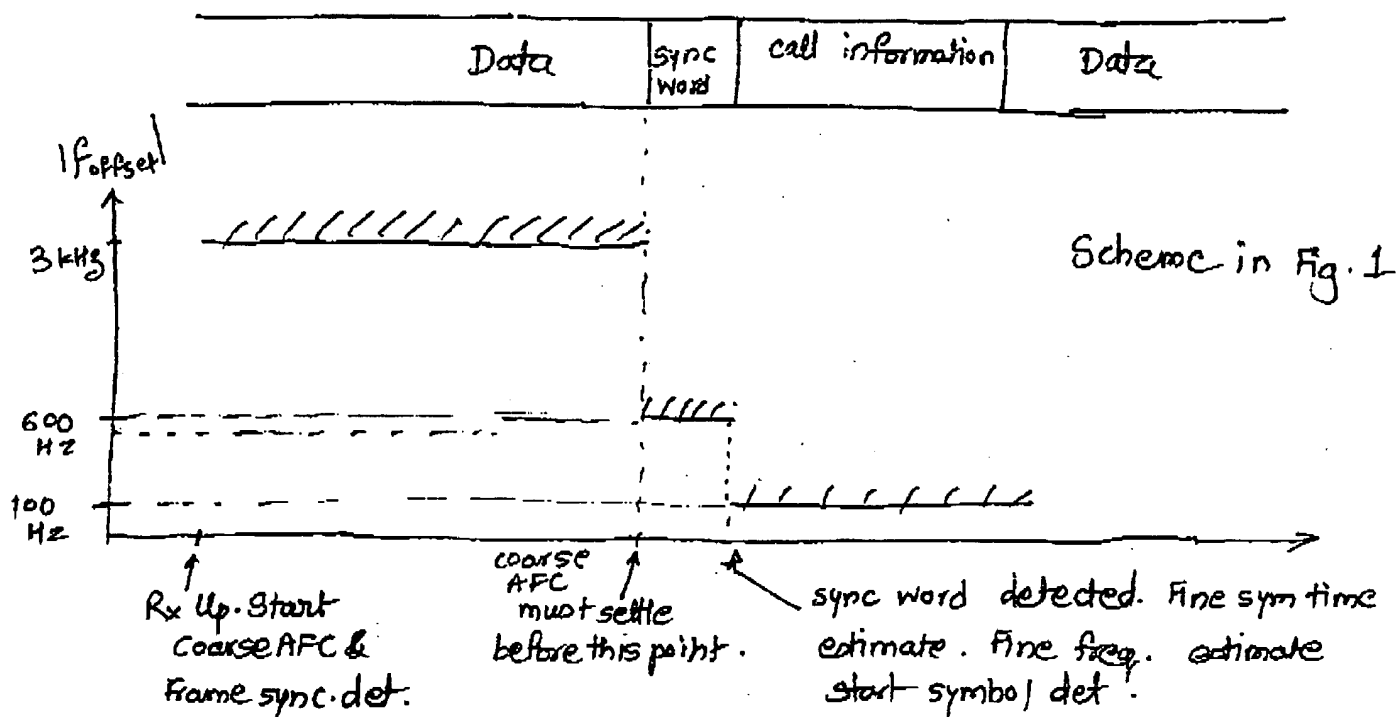 Data
sync
word
call information
Data
|foffset|
3 kHz
Scheme in Fig. 1
600
Hz
100
Hz
Rx Up. Start
Coarse AFC &
Frame sync. det.
coarse
AFC
must settle
before this point.
sync word detected. Fine sym time
estimate. Fine freq. estimate
start symbol det.